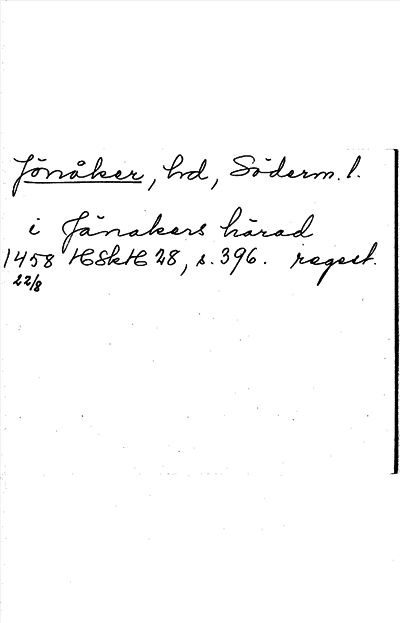 Jönåker, hd, Söderm. l.
i Jänakers härad
1458 HSkH 28, s. 396. regest.
22/8